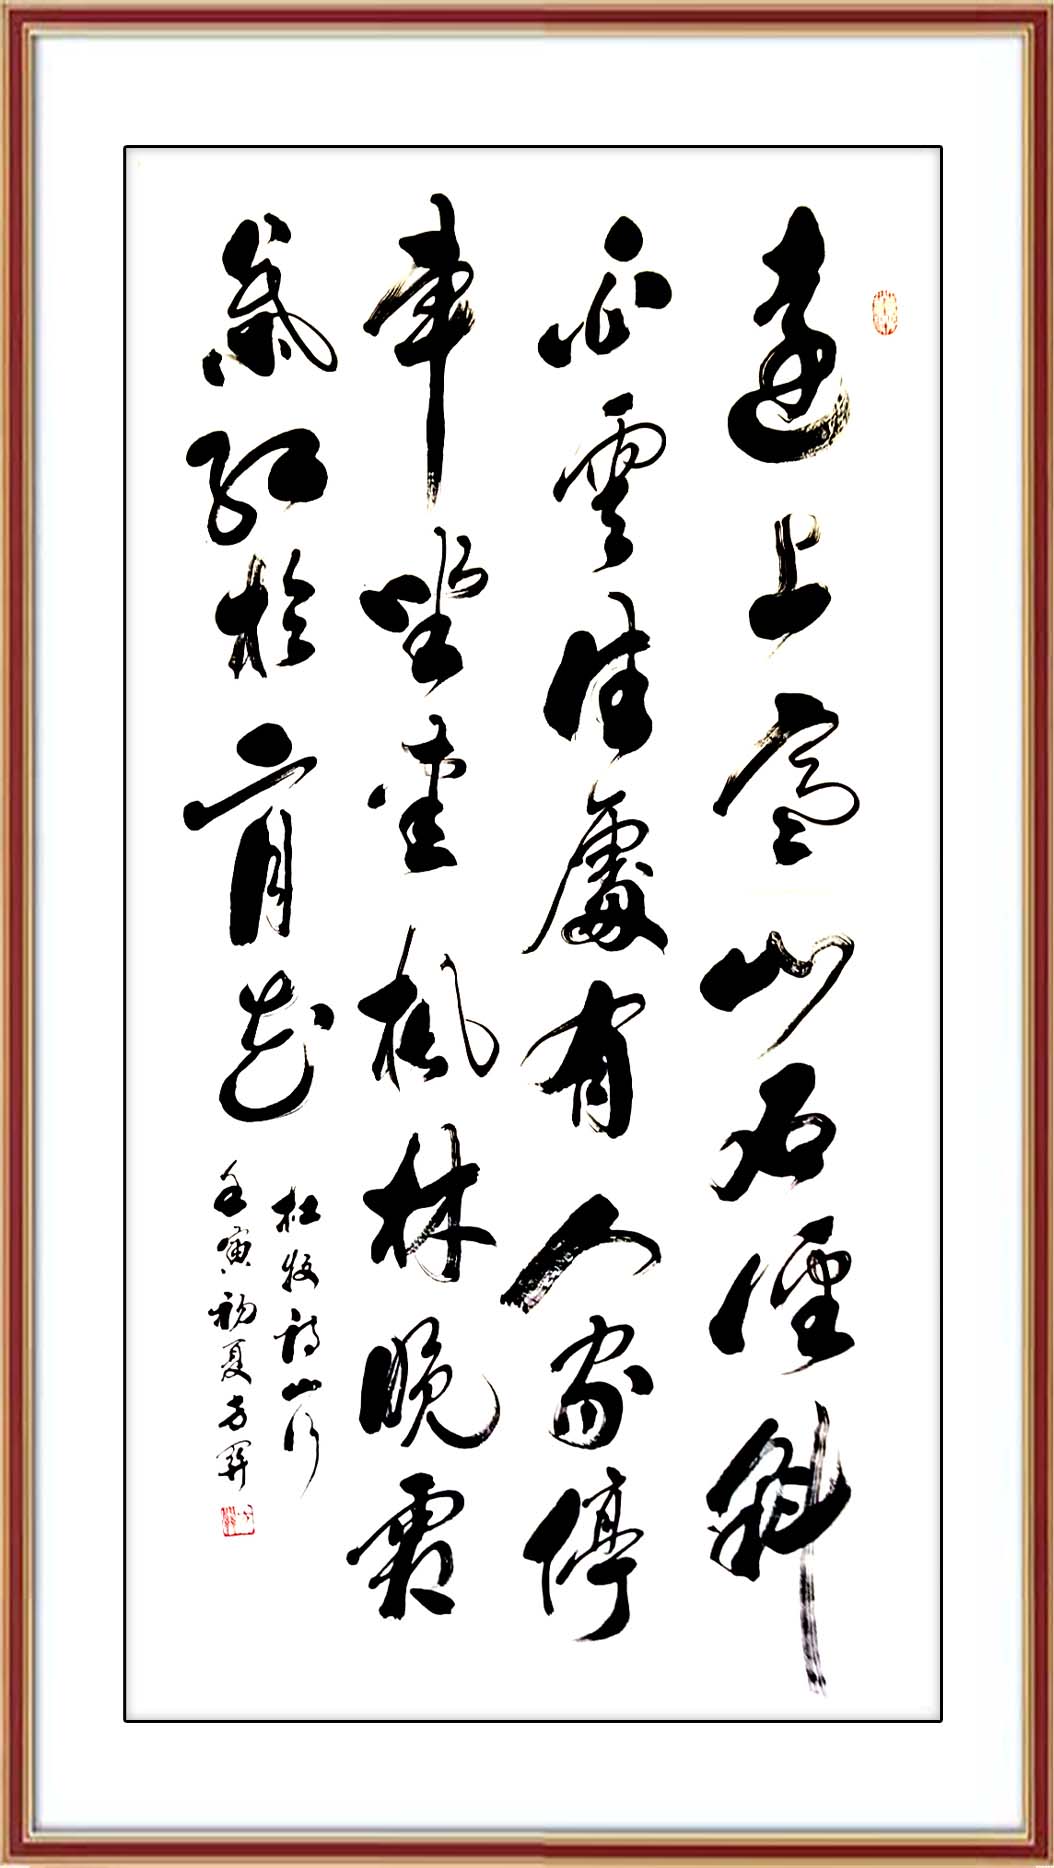 遠上寒山石徑斜
白雲生處有人家停
車坐愛楓林晚霜
葉紅於二月花
杜牧詩山行
壬寅初夏方